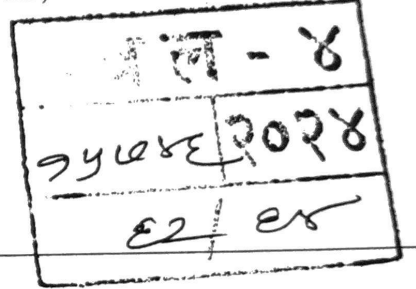 ल - ४
१५७४६ २०२४
६२ / ६४